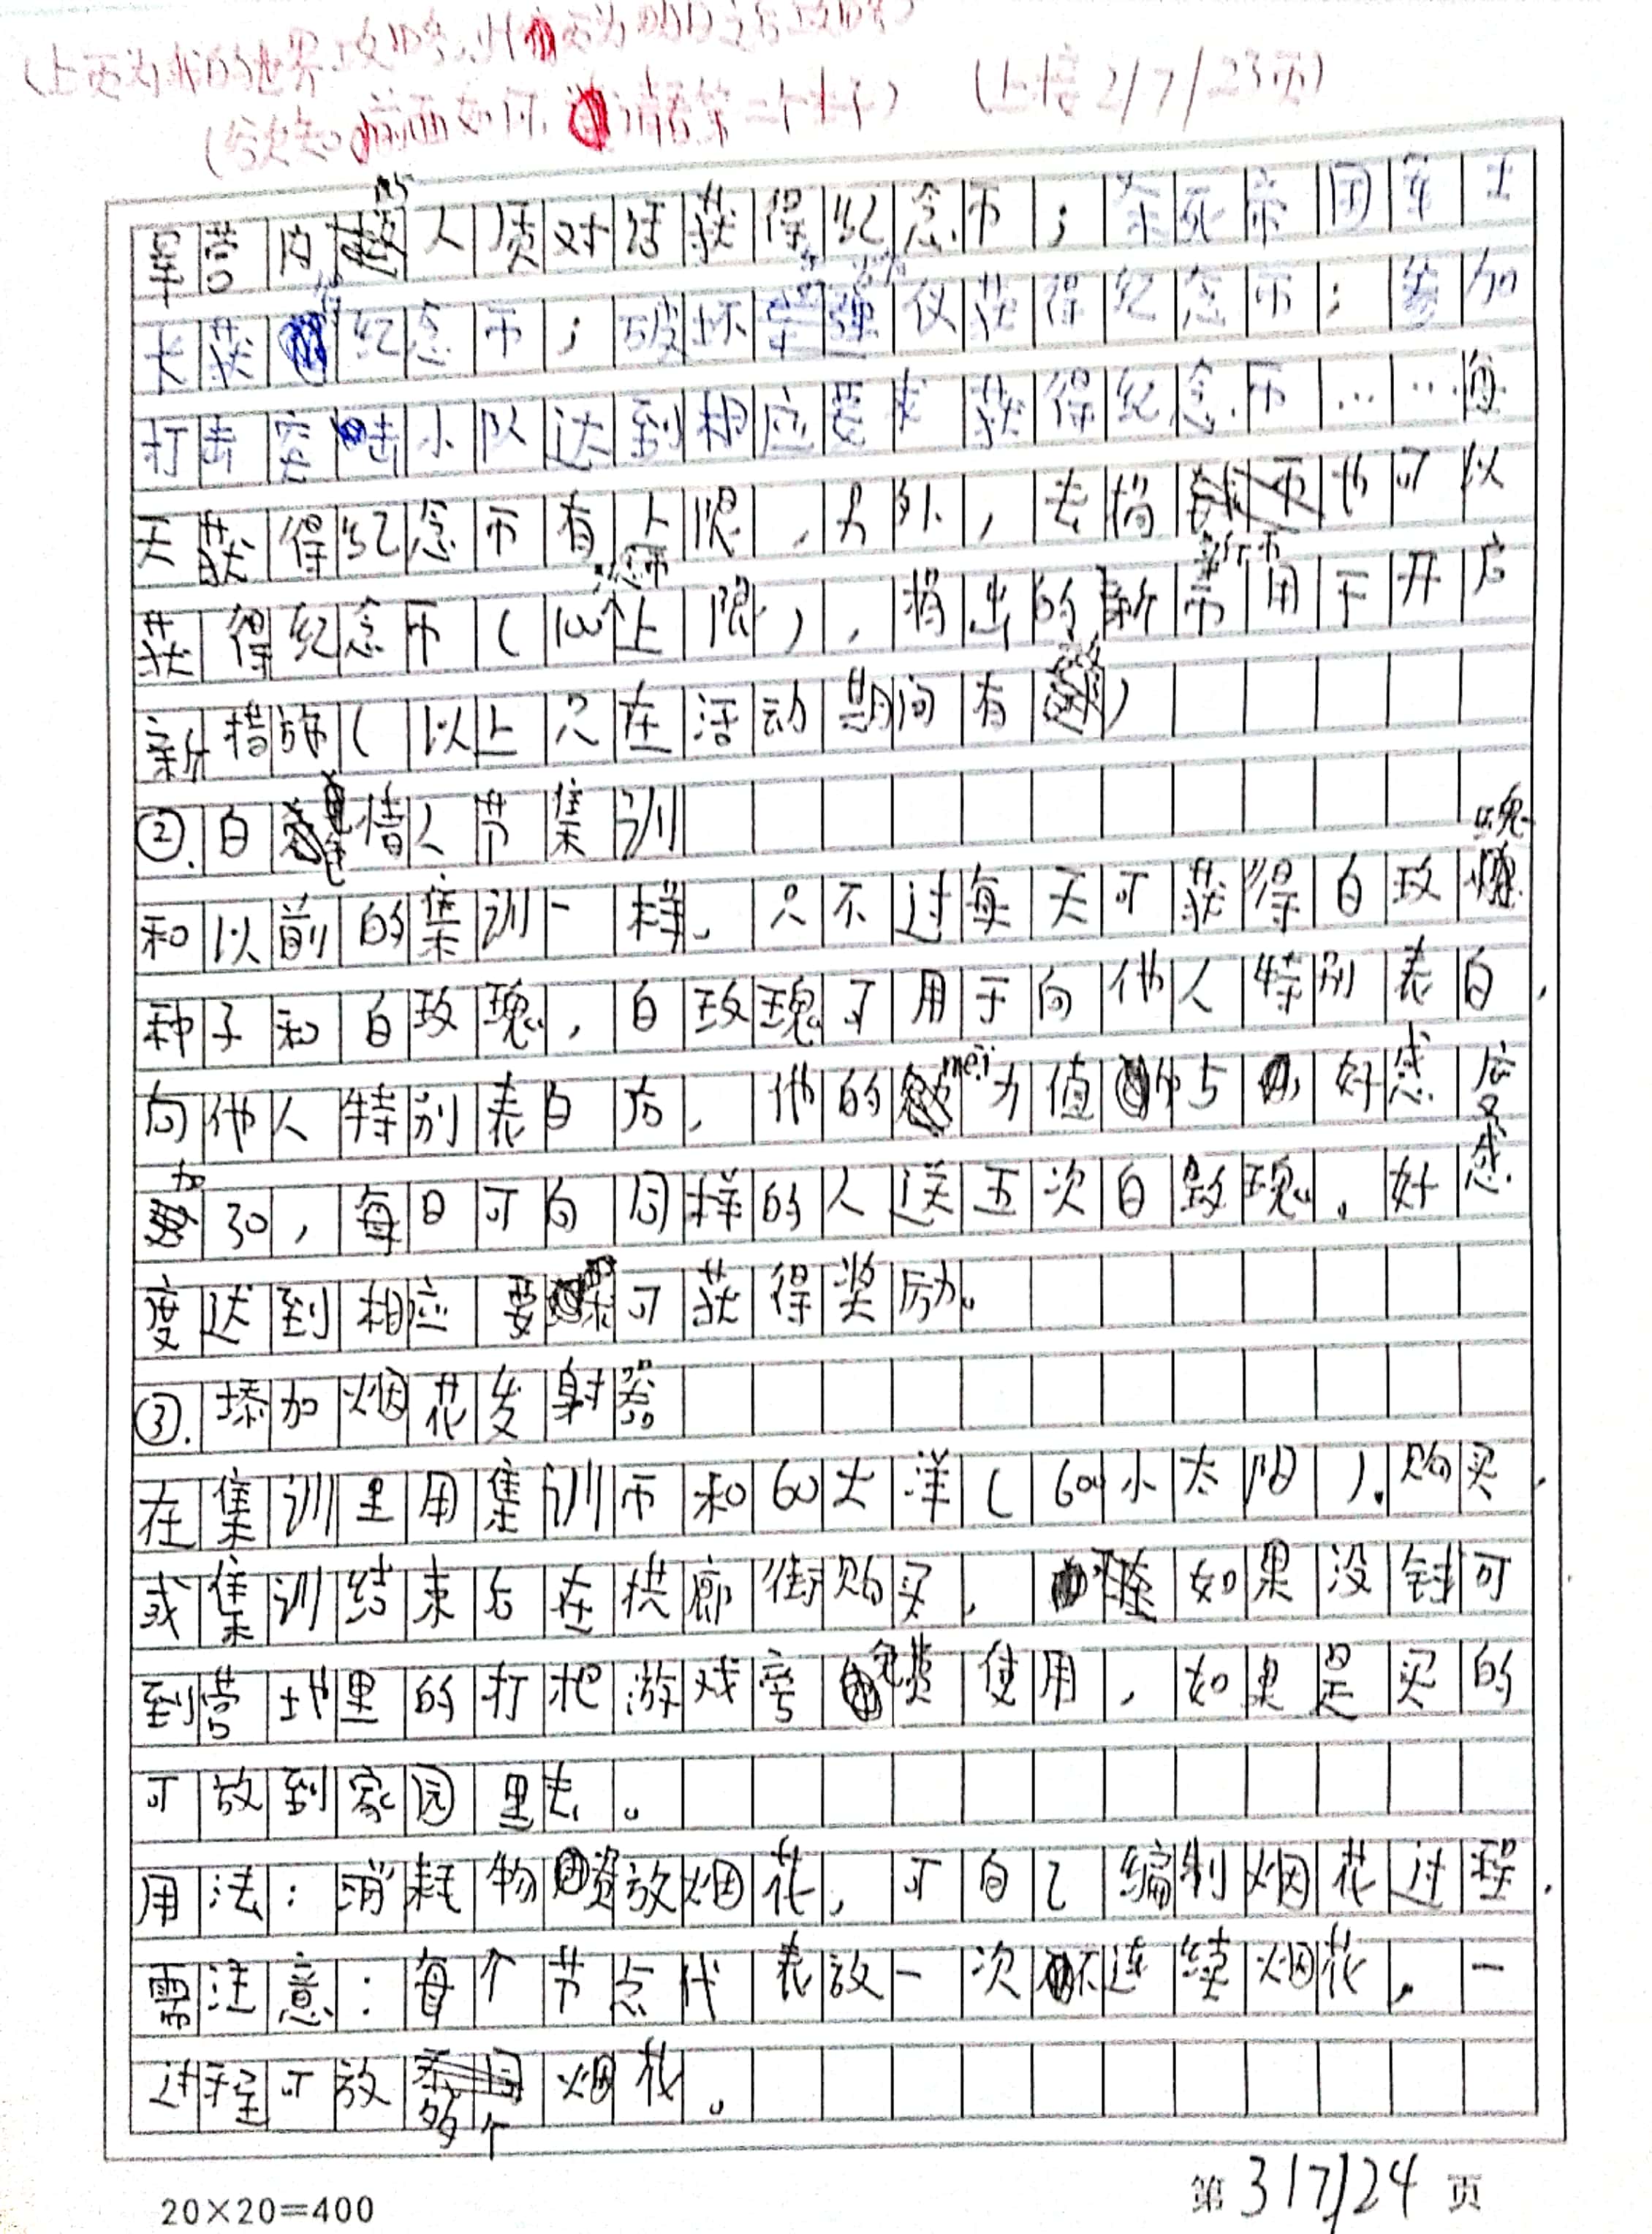 (上页为我的世界攻略,此页为明日之后攻略)
(欲知前面如何,请看第二个本子) (上接2/7/23页)
军营内与人质对话获得纪念币;杀死帝国军士
长获得纪念币;破坏仪获得纪念币;参加
打击突击小队达到相应要求获得纪念币……每
天获得纪念币有上限,另外,去捐新币也可以
获得纪念币(100纪念币上限),捐出的新币用于开启
新措施(以上只在活动期间有效)
②.白色情人节集训
和以前的集训一样,只不过每天可获得白玫瑰
种子和白玫瑰,白玫瑰可用于向他人特别表白,
向他人特别表白后,他的mei力值与好感度
加30,每日可向同样的人送五次白玫瑰,好感
度达到相应要求可获得奖励。
③.添加烟花发射器
在集训里用集训币和60大洋(600小太阳),购买,
或集训结束后在拱廊街购买,如果没钱可
到营地里的打把游戏旁免费使用,如果是买的
可放到家园里去。
用法:消耗物资放烟花,可自己编制烟花过程,
需注意:每个节点代表放一次不连续烟花,一
过程可放多个烟花。
20×20=400
第3/7/24页